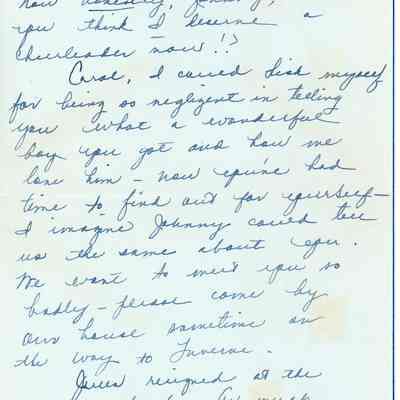 now honestly, Johnny,
you think I deserve a
cheerleader now!!?
Carol, I could kick myself
for being so negligent in telling
you what a wonderful
boy you got and how we
love him – now you've had
time to find out for yourself –
I imagine Johnny could tell
us the same about you.
We want to meet you so
badly – please come by
our house sometime on
the way to Luverne.
resigned at the